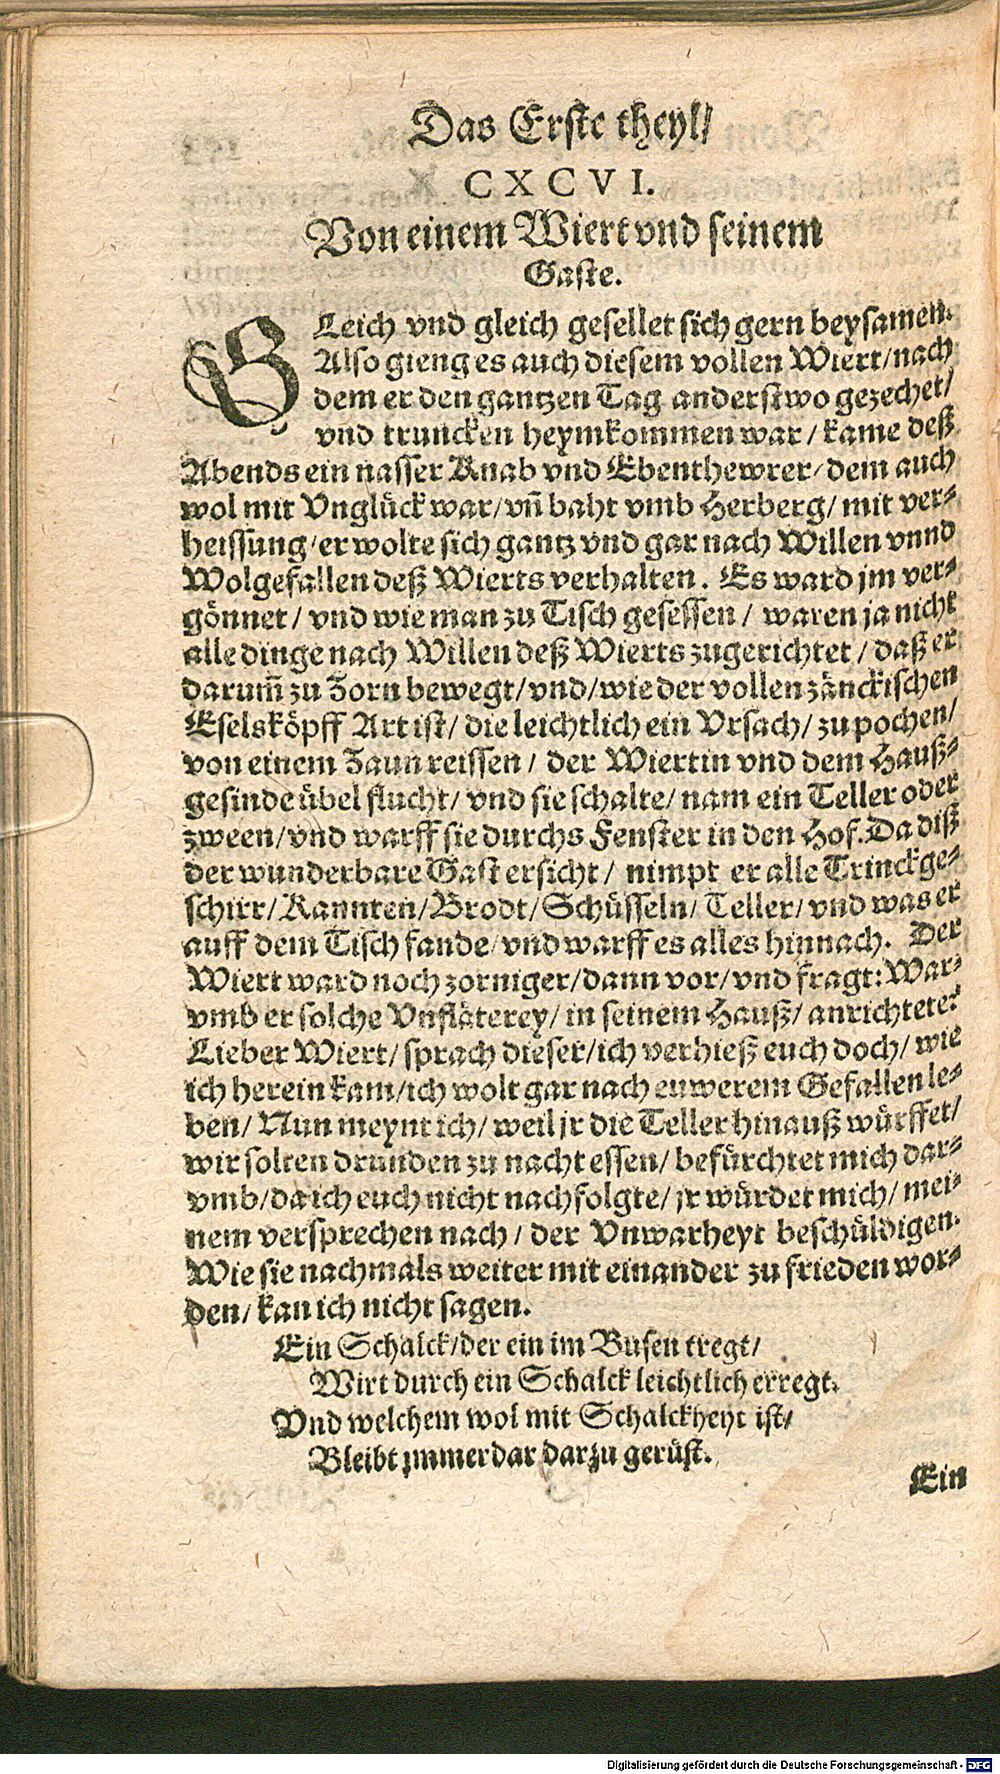 Das Erste theyl/
CXCVI.
Von einem Wiert vnd seinem
Gaste.
GLeich vnd gleich gesellet sich gern beysamen.
Also gieng es auch diesem vollen Wiert/nach
dem er den gantzen Tag anderstwo gezechet/
vnd truncken heymkommen war/ kame deß
Abends ein nasser Knab vnd Ebenthewrer/ dem auch
wol mit Vnglück war/ vñ baht vmb Herberg/ mit ver-
heissung/ er wolte sich gantz vnd gar nach Willen vnnd
Wolgefallen deß Wierts verhalten. Es ward jm ver-
gönnet/ vnd wie man zu Tisch gesessen/ waren ja nicht
alle dinge nach Willen deß Wierts zugerichtet/ daß er
darum̃ zu Zorn bewegt/ vnd/ wie der vollen zänckischen
Eselsköpff Art ist/ die leichtlich ein Vrsach/ zu pochen/
von einem Zaun reissen/ der Wiertin vnd dem Hauß-
gesinde übel flucht/ vnd sie schalte/ nam ein Teller oder
zween/ vnd warff sie durchs Fenster in den Hof. Da diß
der wunderbare Gast ersicht/ nimpt er alle Trinckge-
schirr/ Kannten/ Brodt/ Schüsseln/ Teller/ vnd was er
auff dem Tisch fande/ vnd warff es alles hinnach. Der
Wiert ward noch zorniger/ dann vor/ vnd fragt: War-
vmb er solche Vnfläterey/ in seinem Hauß/ anrichtete?
Lieber Wiert/ sprach dieser/ ich verhieß euch doch/ wie
ich herein kam/ ich wolt gar nach euwerem Gefallen le-
ben/ Nun meynt ich/ weil jr die Teller hinauß würffet/
wir solten drunden zu nacht essen/ befürchtet mich dar-
vmb/ da ich euch nicht nachfolgte/ jr würdet mich/ mei-
nem versprechen nach/ der Vnwarheyt beschüldigen.
Wie sie nachmals weiter mit einander zu frieden wor-
den/ kan ich nicht sagen.
Ein Schalck/ der ein im Busen tregt/
Wirt durch ein Schalck leichtlich erregt.
Vnd welchem wol mit Schalckheyt ist/
Bleibt ymmerdar darzu gerüst.
Ein
Digitalisierung gefördert durch die Deutsche Forschungsgemeinschaft - DFG